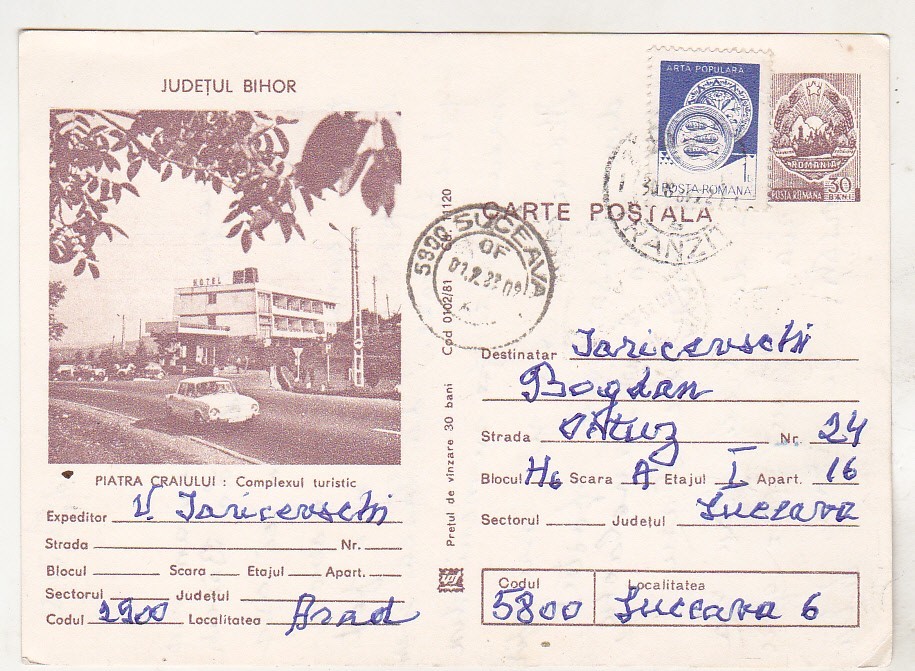 JUDEȚUL BIHOR
HOTEL
PIATRA CRAIULUI : Complexul turistic
Expeditor V. Iaricevschi
Strada Nr.
Blocul Scara Etajul Apart.
Sectorul Județul
Codul 2900 Localitatea Arad
Prețul de vînzare 30 bani Cod 0102/81
ARTA POPULARĂ
1L
POSTA ROMANA
ROMANIA
POSTA ROMANA 30 BANI
CARTE POȘTALĂ
5800 SUCEAVA
OF
01.2.83 09
TRANZIT
Destinatar Iaricevschi
Bogdan
Strada Oituz Nr. 24
Blocul H6 Scara A Etajul I Apart. 16
Sectorul Județul Suceava
Codul Localitatea
5800 Suceava 6